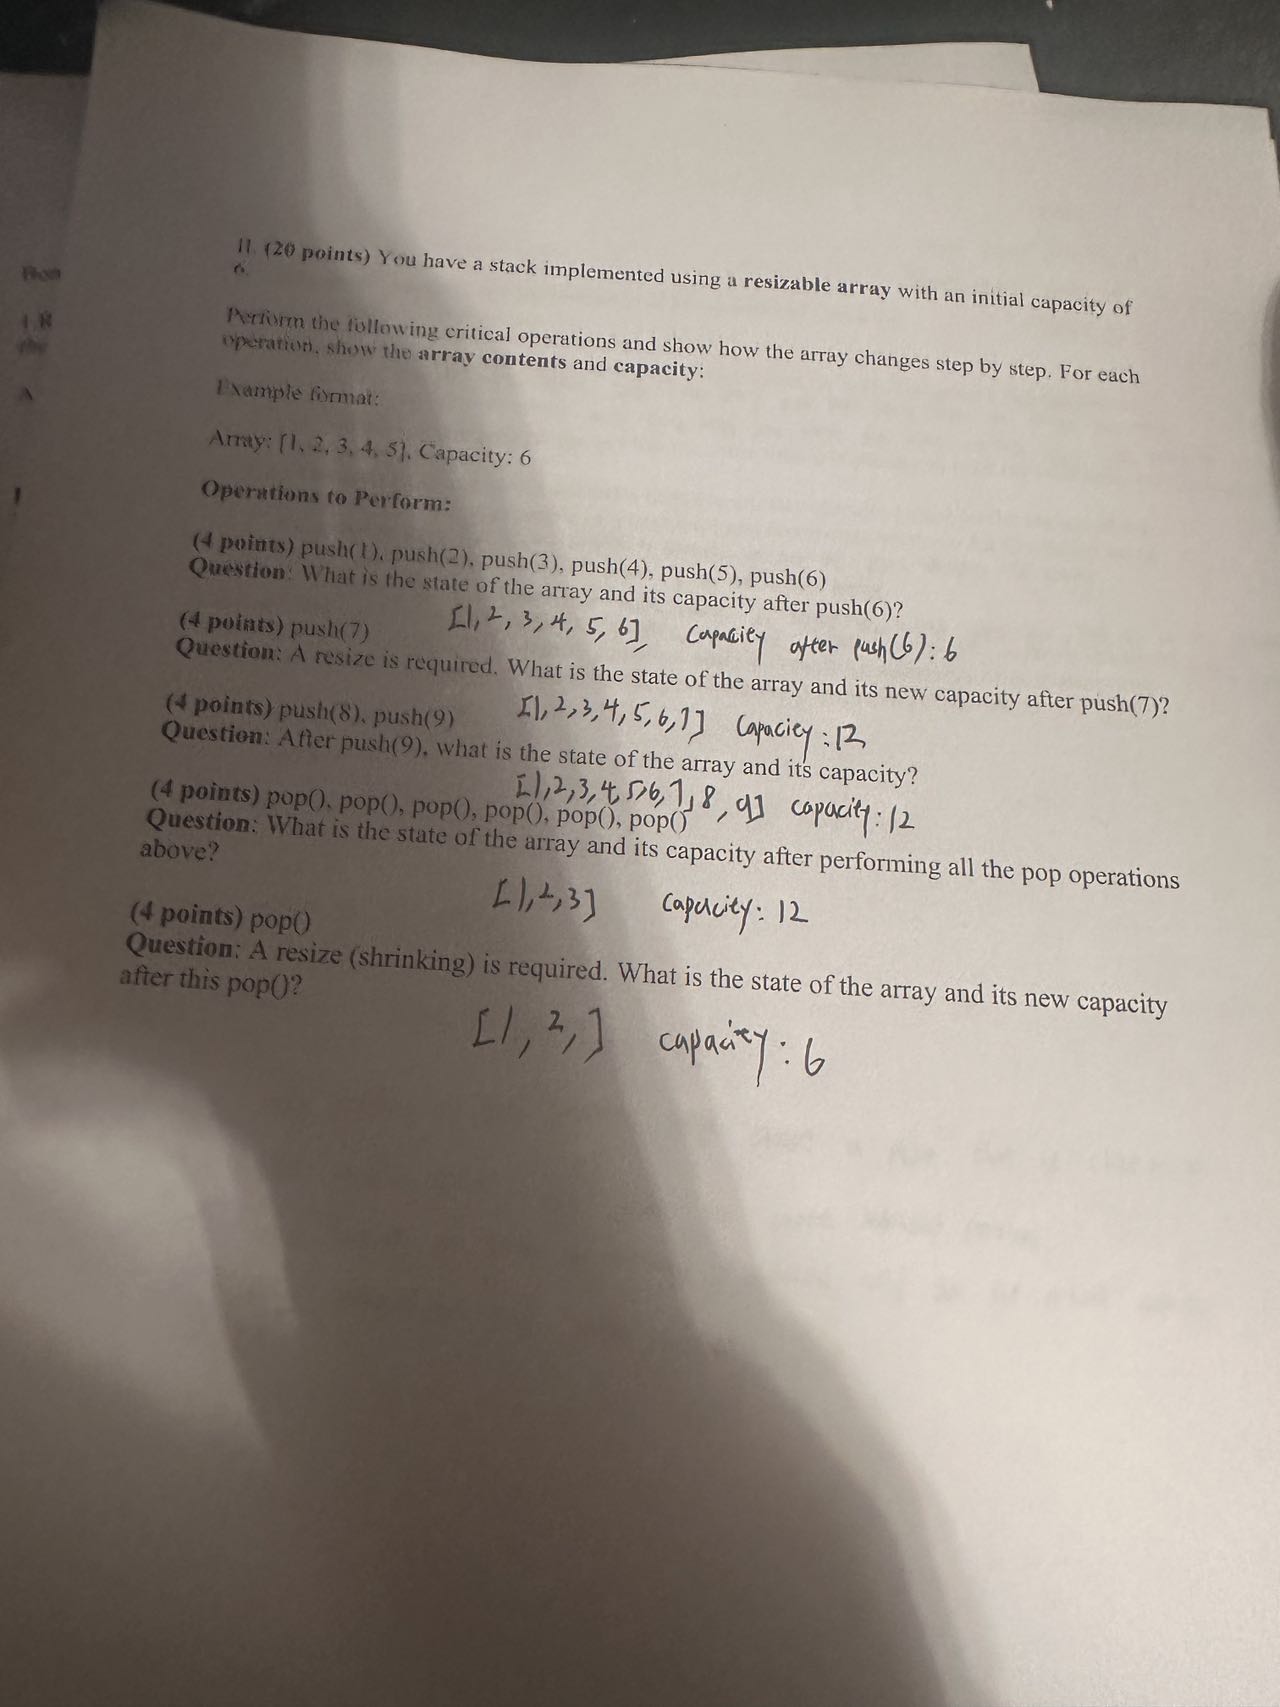 11. (20 points) You have a stack implemented using a resizable array with an initial capacity of
6.
Perform the following critical operations and show how the array changes step by step. For each
operation, show the array contents and capacity:
Example format:
Array: [1, 2, 3, 4, 5], Capacity: 6
Operations to Perform:
(4 points) push(1), push(2), push(3), push(4), push(5), push(6)
Question: What is the state of the array and its capacity after push(6)?
[1, 2, 3, 4, 5, 6], Capacity after push(6): 6
(4 points) push(7)
Question: A resize is required. What is the state of the array and its new capacity after push(7)?
[1,2,3,4,5,6,7] Capacity: 12
(4 points) push(8), push(9)
Question: After push(9), what is the state of the array and its capacity?
[1,2,3,4,5,6,7,8,9] capacity: 12
(4 points) pop(), pop(), pop(), pop(), pop(), pop()
Question: What is the state of the array and its capacity after performing all the pop operations
above?
[1,2,3] capacity: 12
(4 points) pop()
Question: A resize (shrinking) is required. What is the state of the array and its new capacity
after this pop()?
[1, 2,] capacity: 6